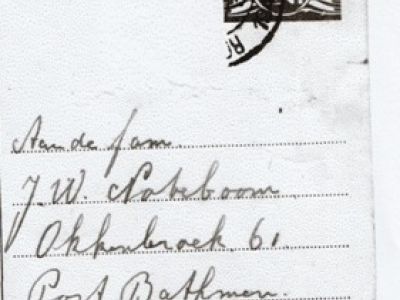 Aan de fam.
J. W. Noteboom
Okkenbroek 61
Post Bathmen.